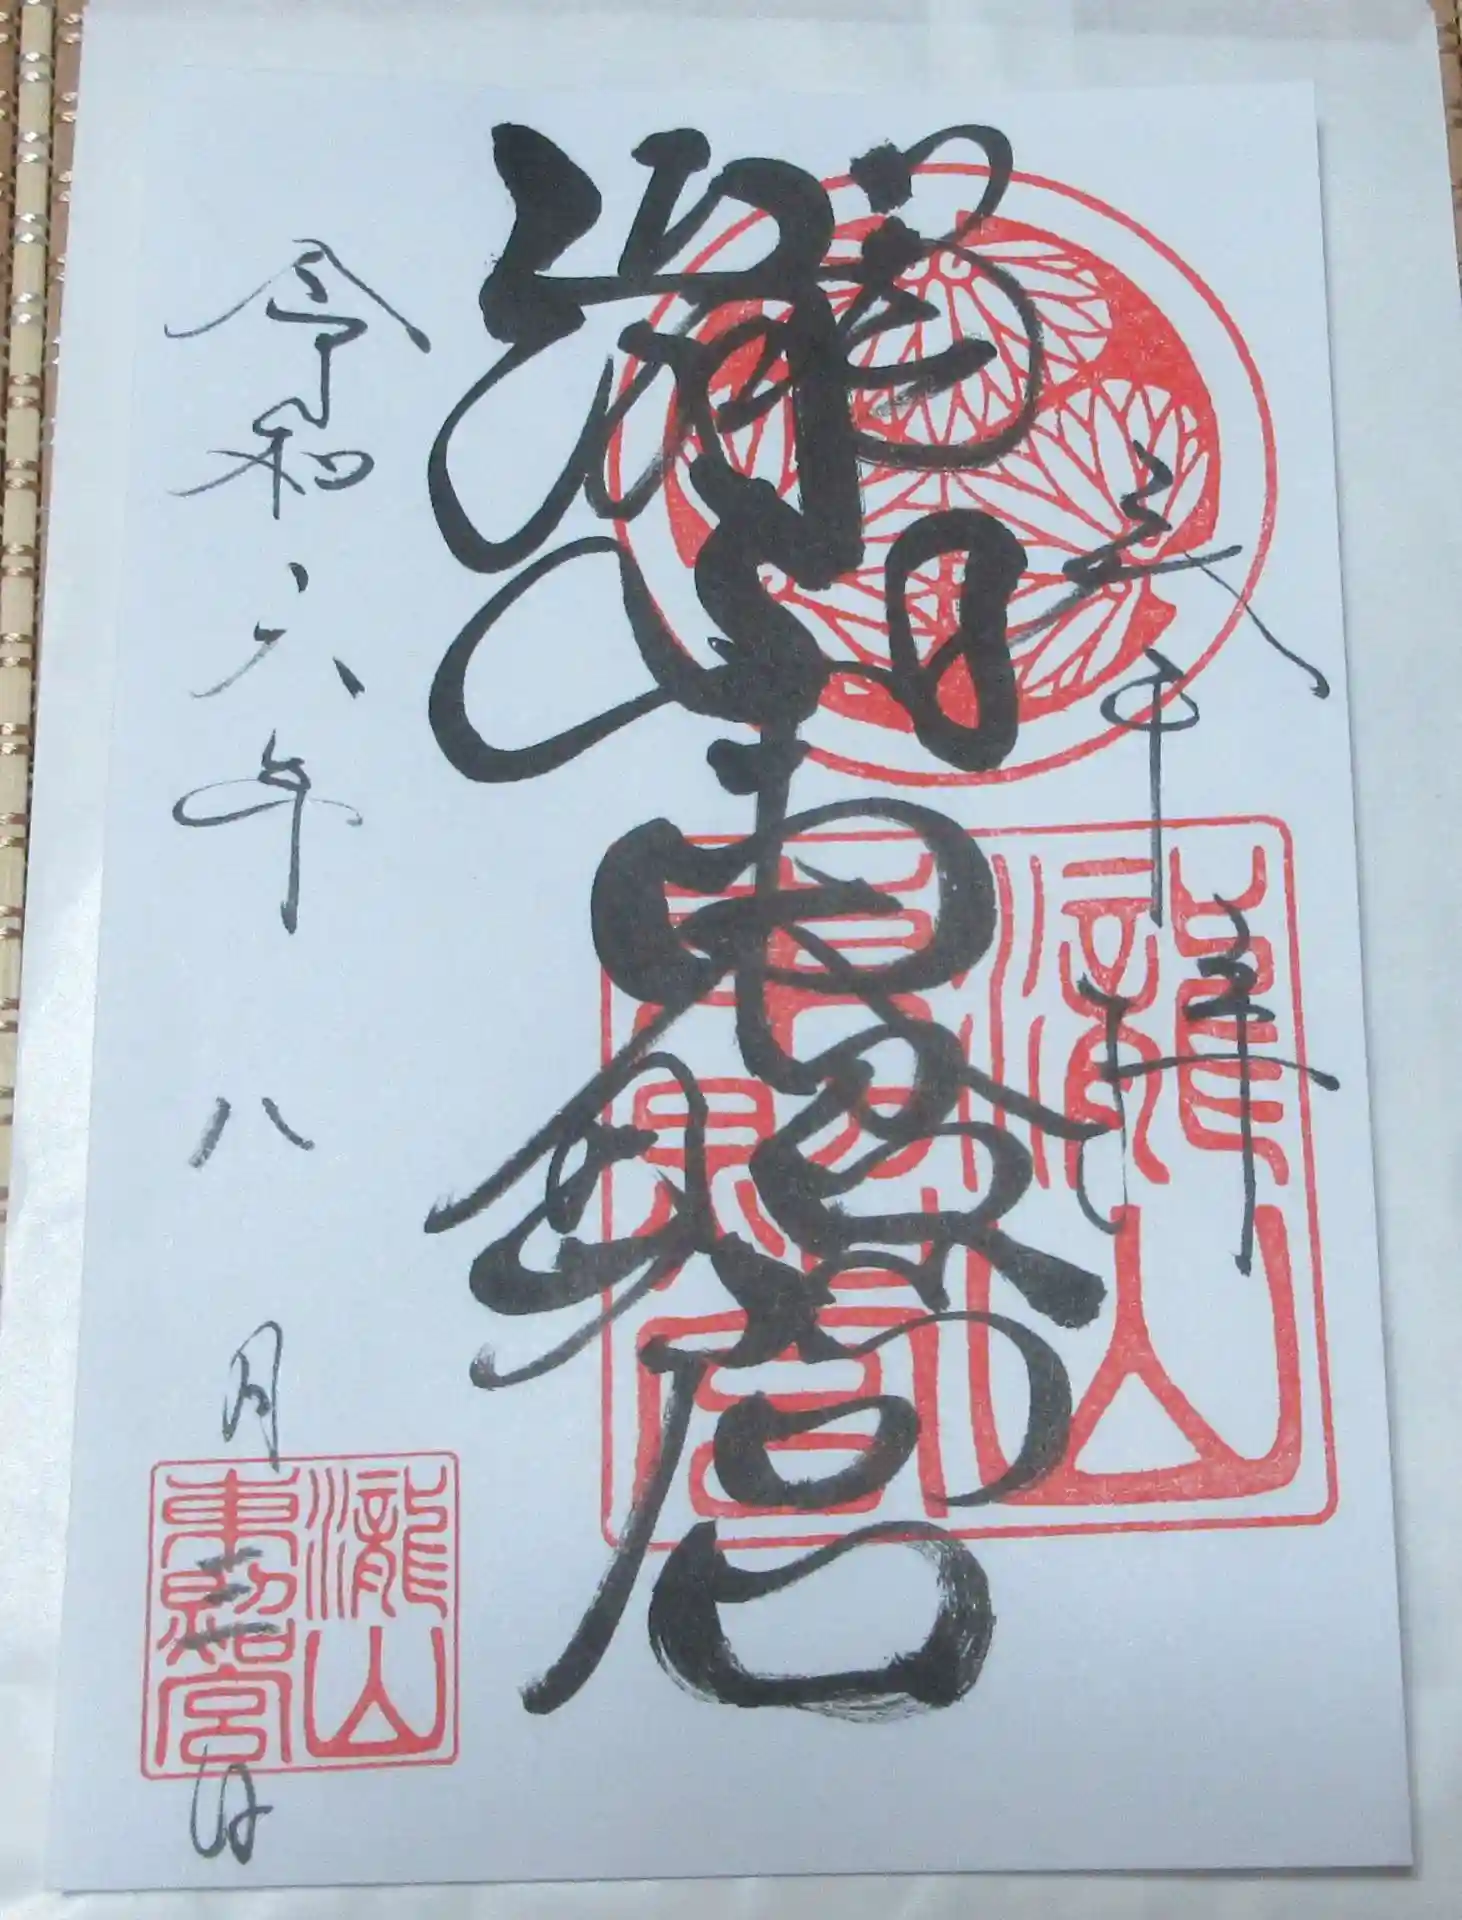 瀧山東照宮
瀧山
東照宮
令和六年八月三日
瀧山
東照宮